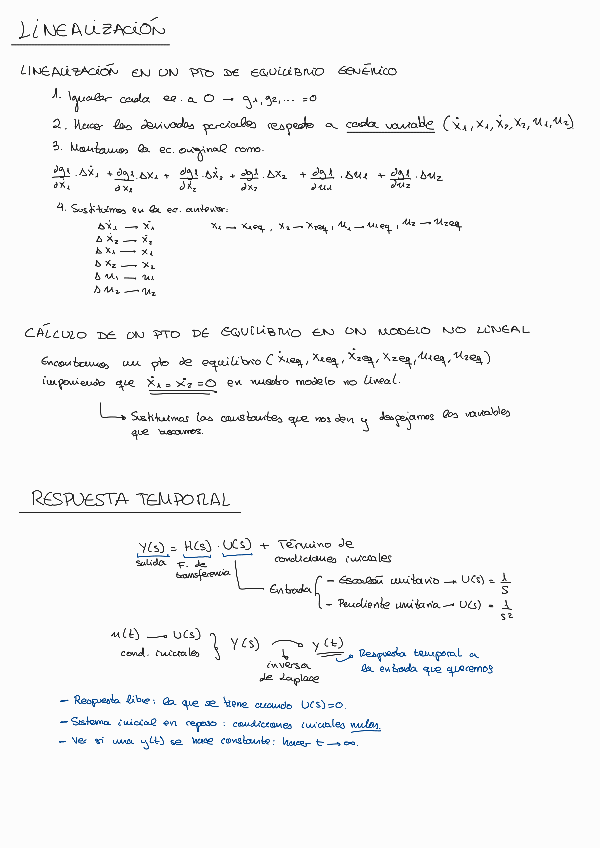 LINEALIZACIÓN
LINEALIZACIÓN EN UN PTO DE EQUILIBRIO GENÉRICO
1. Igualar cada ec. a 0 → g1, g2, ... = 0
2. Hacer las derivadas parciales respecto a cada variable (ẋ1, x1, ẋ2, x2, u1, u2)
3. Montamos la ec. original como:
∂g1/∂ẋ1 · Δẋ1 + ∂g1/∂x1 · Δx1 + ∂g1/∂ẋ2 · Δẋ2 + ∂g1/∂x2 · Δx2 + ∂g1/∂u1 · Δu1 + ∂g1/∂u2 · Δu2
4. Sustituimos en la ec. anterior:
Δẋ1 → ẋ1 x1 → x1eq, x2 → x2eq, u1 → u1eq, u2 → u2eq
Δẋ2 → ẋ2
Δx1 → x1
Δx2 → x2
Δu1 → u1
Δu2 → u2
CÁLCULO DE UN PTO DE EQUILIBRIO EN UN MODELO NO LINEAL
Encontramos un pto de equilibrio (ẋ1eq, x1eq, ẋ2eq, x2eq, u1eq, u2eq)
imponiendo que ẋ1 = ẋ2 = 0 en nuestro modelo no lineal.
→ Sustituimos las constantes que nos den y despejamos las variables
que buscamos.
RESPUESTA TEMPORAL
Y(s) = H(s) · U(s) + Término de
condiciones iniciales
salida F. de
transferencia
Entrada - Escalón unitario → U(s) = 1/s
- Pendiente unitaria → U(s) = 1/s²
u(t) → U(s)
cond. iniciales } Y(s) → y(t)
inversa
de Laplace
Respuesta temporal a
la entrada que queremos
- Respuesta libre: la que se tiene cuando U(s)=0.
- Sistema inicial en reposo: condiciones iniciales nulas.
- Ver si una y(t) se hace constante: hacer t → ∞.